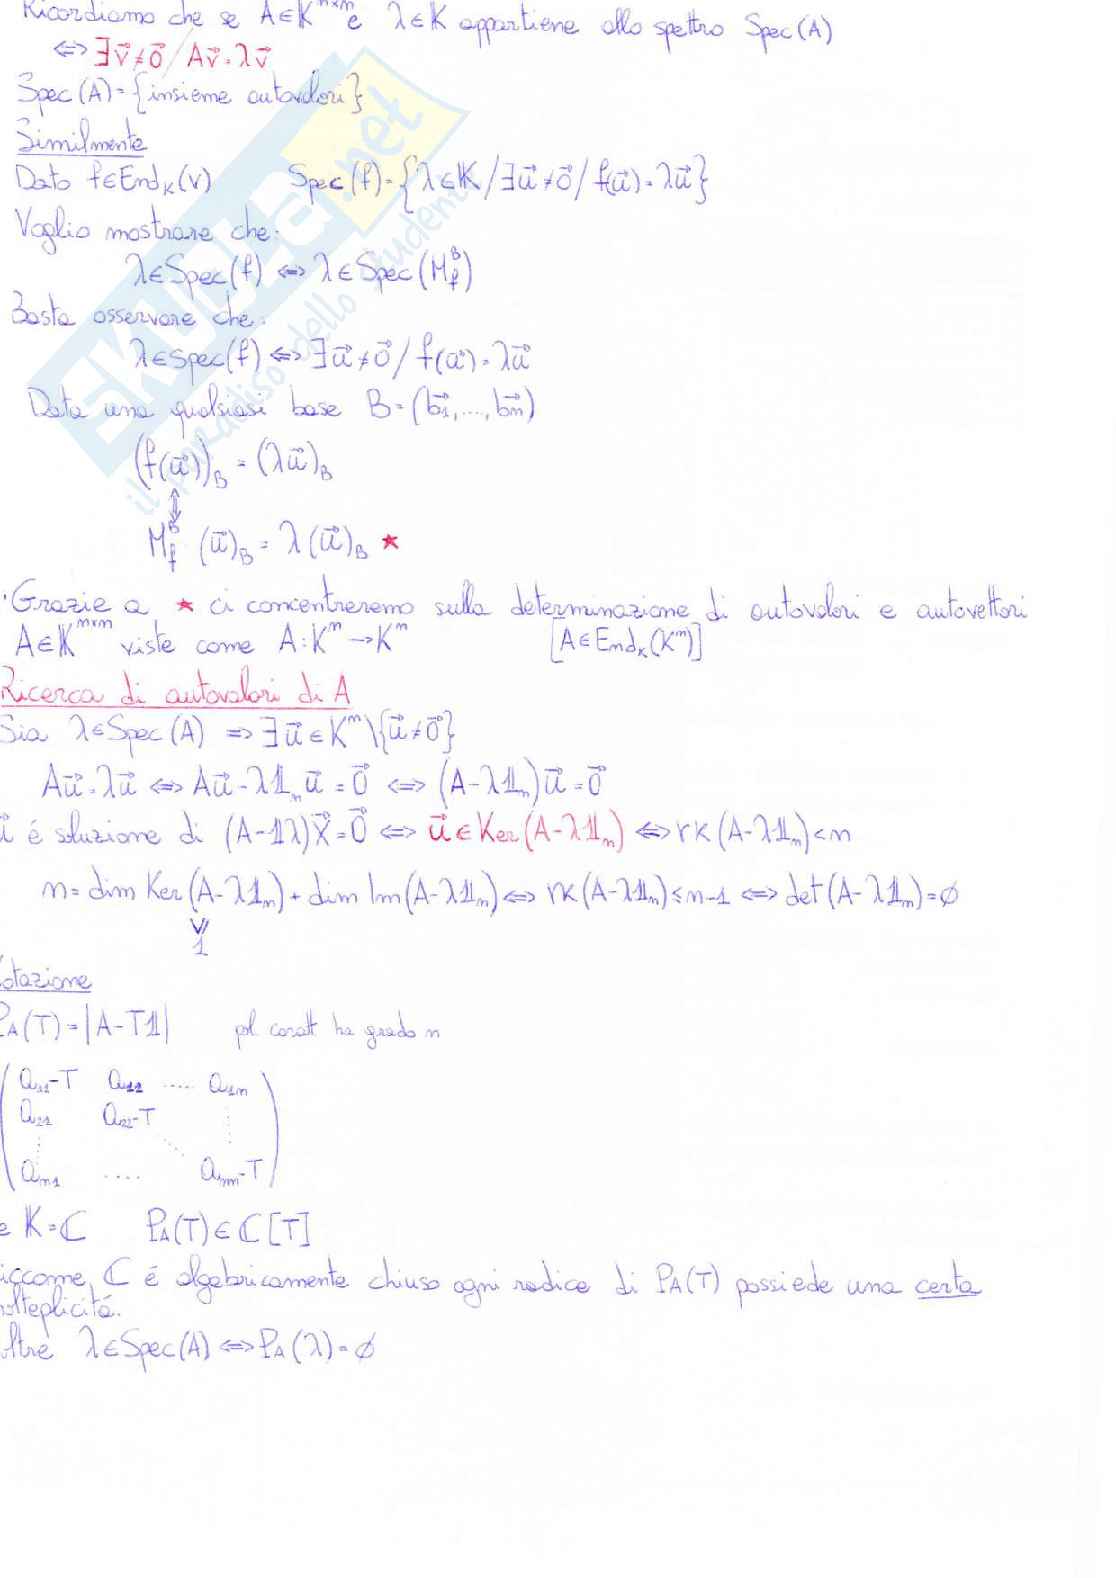 Ricordiamo che se A∈K^{n×m} e λ∈K appartiene allo spettro Spec(A)
⇔ ∃v⃗≠0⃗ / Av⃗=λv⃗
Spec(A)={insieme autovalori}
Similmente
Dato f∈End_K(V) Spec(f)={λ∈K/∃u⃗≠0⃗/f(u⃗)=λu⃗}
Voglio mostrare che:
λ∈Spec(f) ⇔ λ∈Spec(M_f^B)
Basta osservare che:
λ∈Spec(f) ⇔ ∃u⃗≠0⃗ / f(u⃗)=λu⃗
Data una qualsiasi base B=(b⃗1,...,b⃗n)
(f(u⃗))_B = (λu⃗)_B
⇕
M_f^B (u⃗)_B = λ(u⃗)_B ★
·Grazie a ★ ci concentreremo sulla determinazione di autovalori e autovettori
A∈K^{n×n} viste come A:K^n→K^n [A∈End_K(K^n)]
Ricerca di autovalori di A
Sia λ∈Spec(A) ⇒ ∃u⃗∈K^n\{u⃗≠0⃗}
Au⃗=λu⃗ ⇔ Au⃗-λ𝟙_n u⃗=0⃗ ⇔ (A-λ𝟙_n)u⃗=0⃗
u⃗ é soluzione di (A-𝟙λ)X⃗=0⃗ ⇔ u⃗∈Ker(A-λ𝟙_n) ⇔ rk(A-λ𝟙_n)<n
n=dim Ker(A-λ𝟙_n)+dim Im(A-λ𝟙_n) ⇔ rk(A-λ𝟙_n)≤n-1 ⇔ det(A-λ𝟙_n)=∅
≥
1
otazione
P_A(T)=|A-T𝟙| pol caratt ha grado n
a11-T a12 .... a1n
a21 a22-T
an1 .... ann-T
e K=C P_A(T)∈C[T]
iccome C é algebricamente chiuso ogni radice di P_A(T) possiede una certa
olteplicitá.
oltre λ∈Spec(A) ⇔ P_A(λ)=∅
SKUOLA.net
il paradiso dello studente